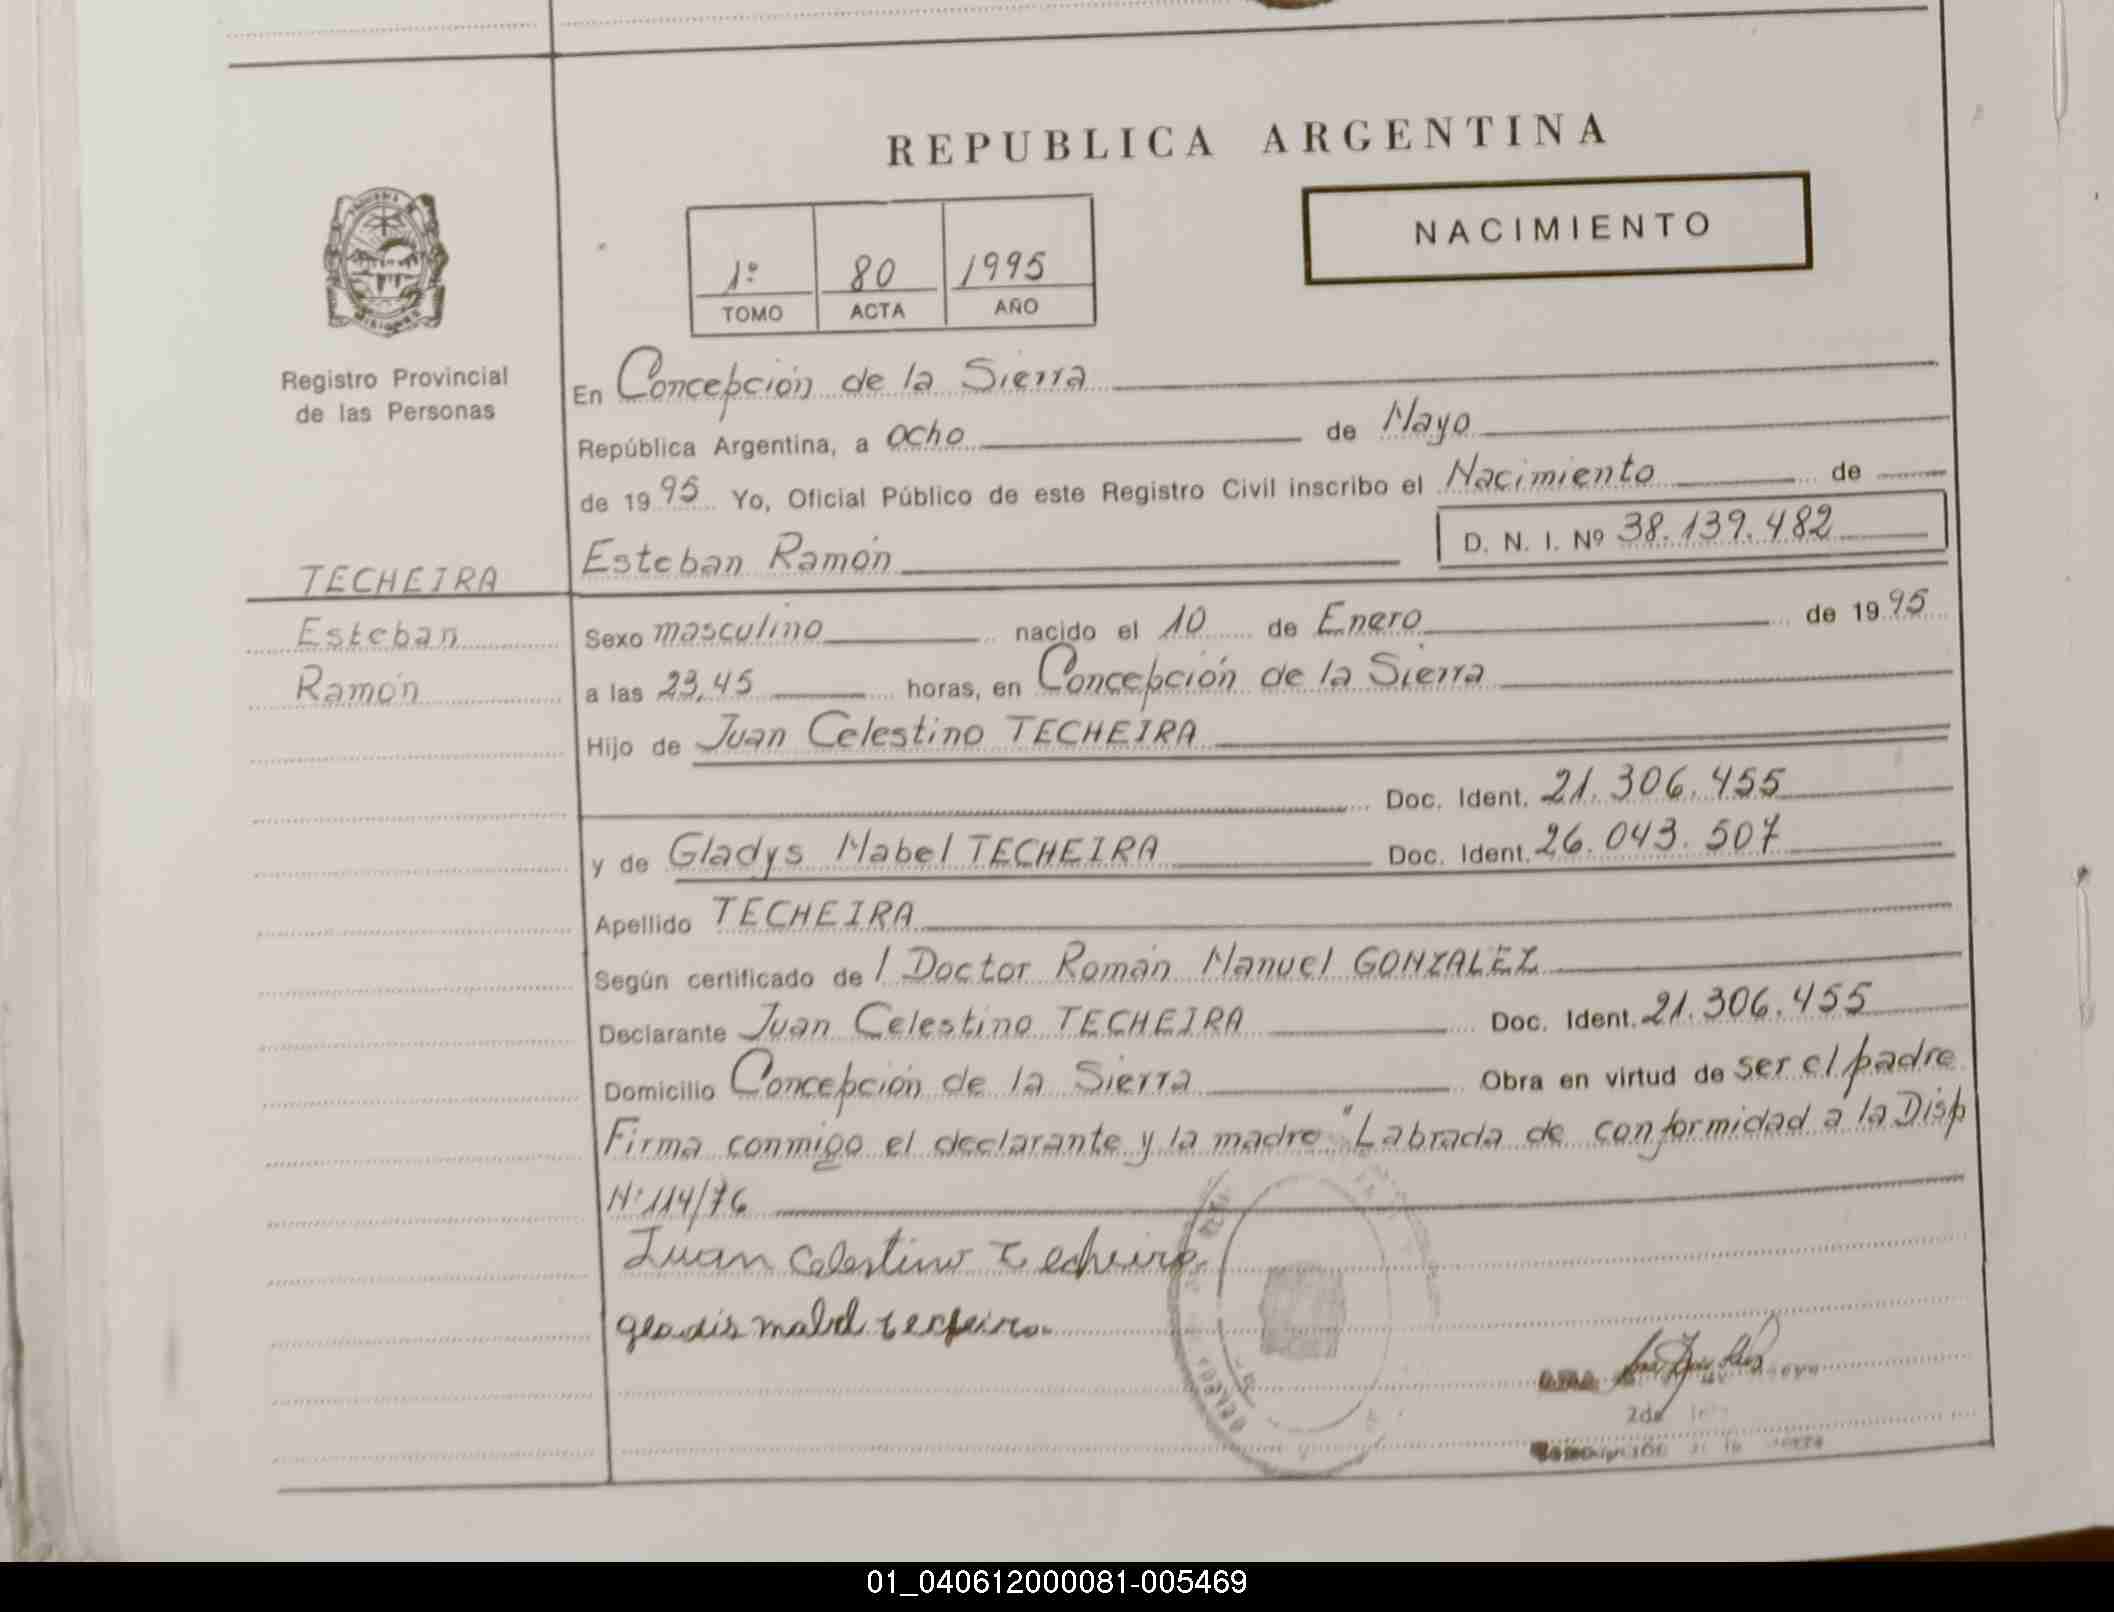 REPUBLICA ARGENTINA
NACIMIENTO
1º 80 1995
TOMO ACTA AÑO
Registro Provincial
de las Personas
TECHEIRA
Esteban
Ramón
En Concepción de la Sierra
República Argentina, a ocho de Mayo
de 1995 Yo, Oficial Público de este Registro Civil inscribo el Nacimiento de
Esteban Ramón D. N. I. Nº 38.139.482
Sexo masculino nacido el 10 de Enero de 1995
a las 23,45 horas, en Concepción de la Sierra
Hijo de Juan Celestino TECHEIRA
Doc. Ident. 21.306.455
y de Gladys Mabel TECHEIRA Doc. Ident. 26.043.507
Apellido TECHEIRA
Según certificado de l Doctor Román Manuel GONZALEZ
Declarante Juan Celestino TECHEIRA Doc. Ident. 21.306.455
Domicilio Concepción de la Sierra Obra en virtud de ser el padre
Firma conmigo el declarante y la madre "Labrada de conformidad a la Disp
Nº 114/76
Juan Celestino Techeira
gladis mabel techeira
01_040612000081-005469